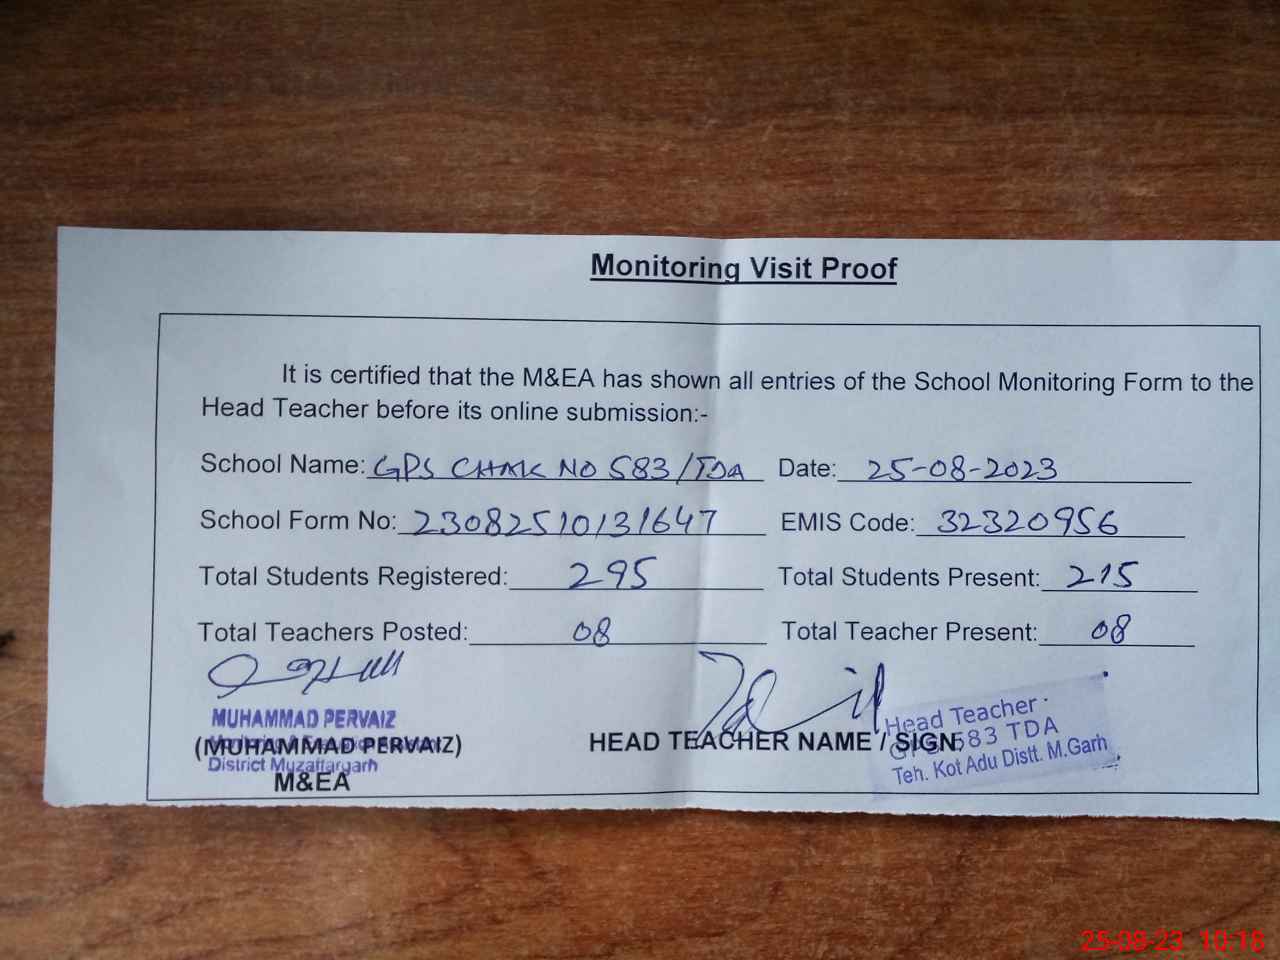 Monitoring Visit Proof
It is certified that the M&EA has shown all entries of the School Monitoring Form to the
Head Teacher before its online submission:-
School Name: GPS CHAK NO 583/TDA Date: 25-08-2023
School Form No: 23082510131647 EMIS Code: 32320956
Total Students Registered: 295 Total Students Present: 215
Total Teachers Posted: 08 Total Teacher Present: 08
MUHAMMAD PERVAIZ
Monitoring & Evaluation Assistant
District Muzaffargarh
(MUHAMMAD PERVAIZ)
M&EA
HEAD TEACHER NAME / SIGN.
Head Teacher
GPS 583 TDA
Teh. Kot Adu Distt. M.Garh
25-08-23 10:18